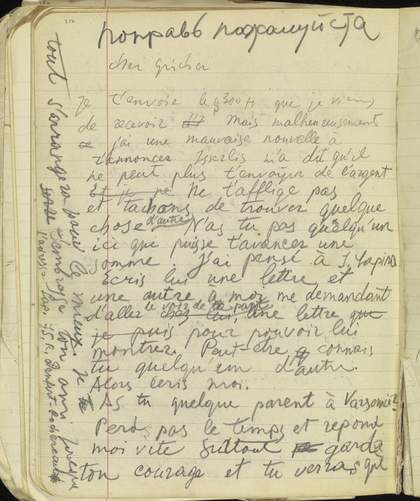 поправь пожалуйста
cher Grisha
Je t'envoie les 300 fr que je viens
de recevoir !!! Mais malheureusement
j'ai une mauvaise nouvelle à
t'annoncer m'a dit qu'il
ne peut plus t'envoyer de l'argent
Ne t'afflige pas
et tachons de trouver quelque
chose d'autre N'as tu pas quelqu'un
ici que puisse t'avancer une
somme. J'ai pensé à J.
Ecris lui une lettre et
une autre à moi me demandant
d'aller le voir de ta part une lettre que
je puis pour pouvoir lui
montrer Peut-être connais
tu quelqu'un d'autre
Alors écris moi.
As tu quelque parent à
Perds pas le temps et repond
moi vite Surtout garde
ton courage et tu verras que
tout s'arrangera pour le mieux. Je te
serre ton ami